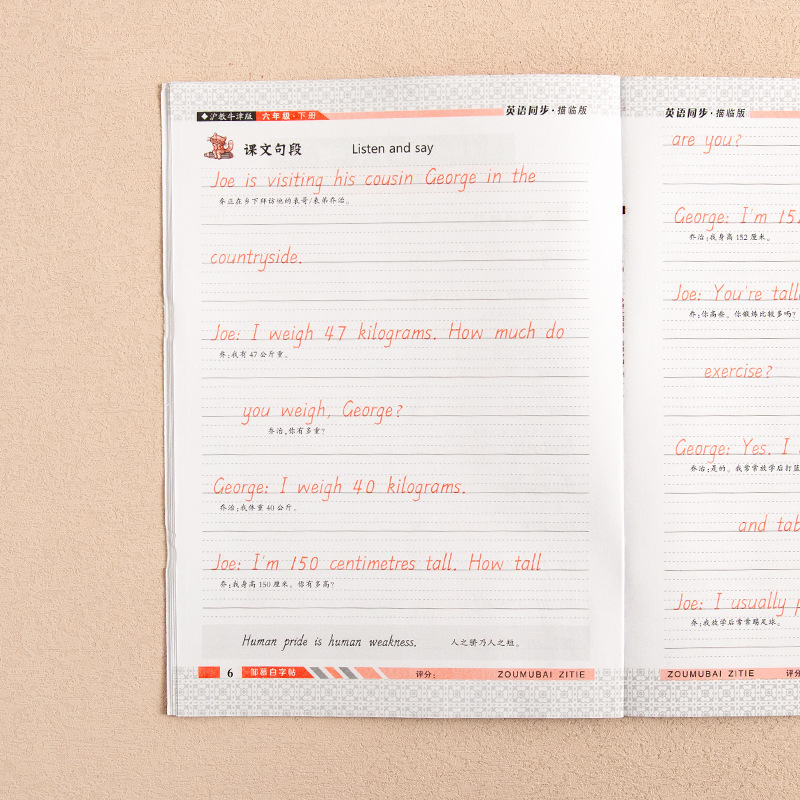 沪教牛津版 六年级·下册
英语同步·描临版
课文句段 Listen and say
Joe is visiting his cousin George in the
乔正在乡下拜访他的表哥/表弟乔治。
countryside.
Joe: I weigh 47 kilograms. How much do
乔:我有 47 公斤重。
you weigh, George?
乔治,你有多重?
George: I weigh 40 kilograms.
乔治:我体重 40 公斤。
Joe: I'm 150 centimetres tall. How tall
乔:我身高 150 厘米。你有多高?
Human pride is human weakness. 人之骄乃人之短。
6 邹慕白字帖 评分: ZOUMUBAI ZITIE
英语同步·描临版
are you?
George: I'm 152
乔治:我身高 152 厘米。
Joe: You're tall
乔:你高些。你锻炼比较多吗?
exercise?
George: Yes. I
乔治:是的。我常常放学后打篮
and tab
Joe: I usually p
乔:我放学后常常踢足球。
ZOUMUBAI ZITIE 评分